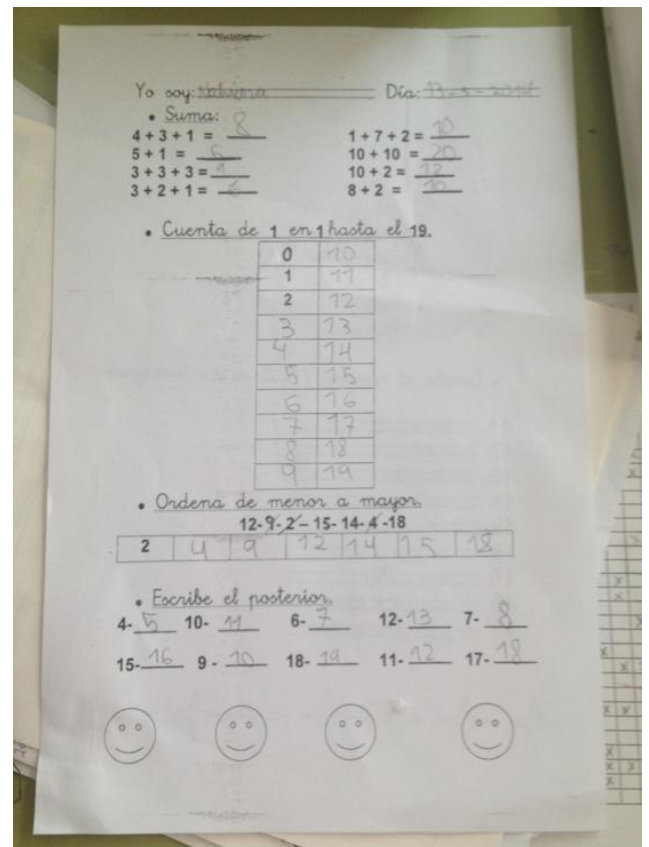 Yo soy: Día: 13-5-2014
• Suma:
4 + 3 + 1 = 8 1 + 7 + 2 = 10
5 + 1 = 6 10 + 10 = 20
3 + 3 + 3 = 9 10 + 2 = 12
3 + 2 + 1 = 6 8 + 2 = 10
• Cuenta de 1 en 1 hasta el 19.
0 10
1 11
2 12
3 13
4 14
5 15
6 16
7 17
8 18
9 19
• Ordena de menor a mayor.
12- 9- 2 – 15- 14- 4 -18
2 4 9 12 14 15 18
• Escribe el posterior.
4- 5 10- 11 6- 7 12- 13 7- 8
15- 16 9 - 10 18- 19 11- 12 17- 18